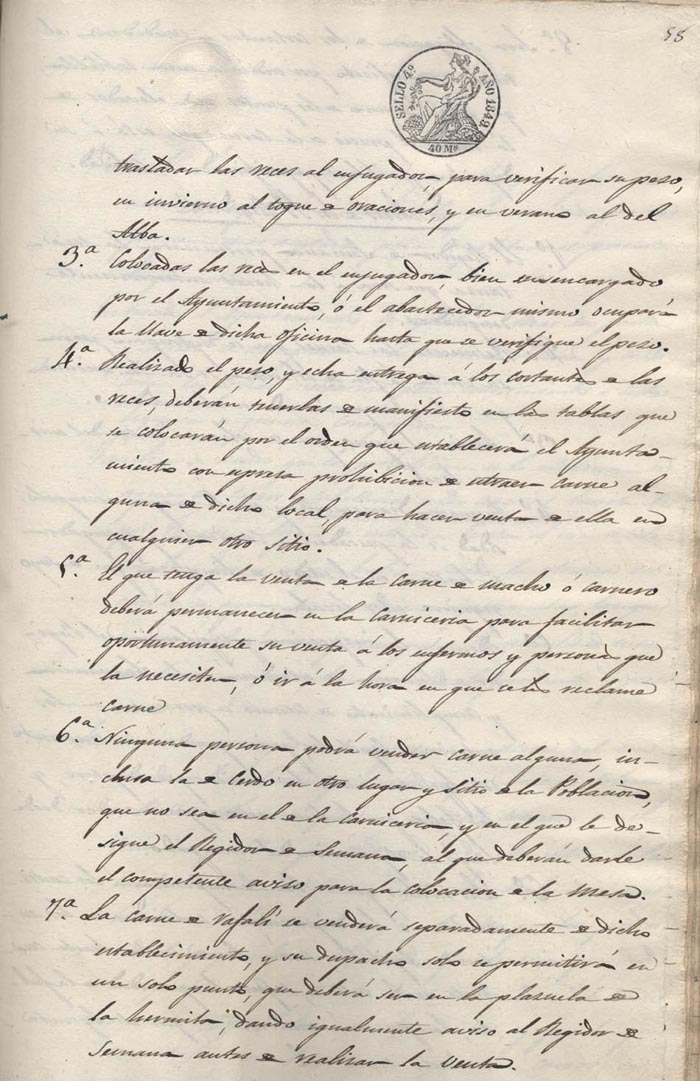 58
SELLO 4º AÑO 1849.
40 Ms
trasladar las reces al enjugador, para verificar su peso,
en invierno al toque de oraciones, y en verano al del
Alba.
3.ª Colocadas las reces en el enjugador, bien un encargado
por el Ayuntamiento, ó el abastecedor mismo ocupará
la llave de dicha oficina hasta que se verifique el peso.
4.ª Realizado el peso, y echa entrega á los cortantes de las
reces, deberán tenerlas de manifiesto en las tablas que
se colocarán por el orden que establecerá el Ayunta-
miento con espresa prohibicion de estraer carne al-
guna de dicho local, para hacer venta de ella en
cualquier otro sitio.
5.ª El que tenga la venta de la carne de macho ó carnero
deberá permanecer en la Carniceria para facilitar
oportunamente su venta á los enfermos y personas que
la necesiten, ó ir á la hora en que se le reclame
carne
6.ª Ninguna persona podrá vender carne alguna, in-
clusa la de Cerdo en otro lugar y sitio de la Poblacion,
que no sea en el de la Carniceria y en el que le de-
signe el Regidor de Semana, al que deberán darle
el competente aviso para la colocacion de la mesa.
7.ª La carne de rafalí se venderá separadamente de dicho
establecimiento, y su despacho solo se permitirá en
un solo punto, que deberá ser en la plazuela de
la hermita, dando igualmente aviso al Regidor de
Semana antes de realizar la venta.